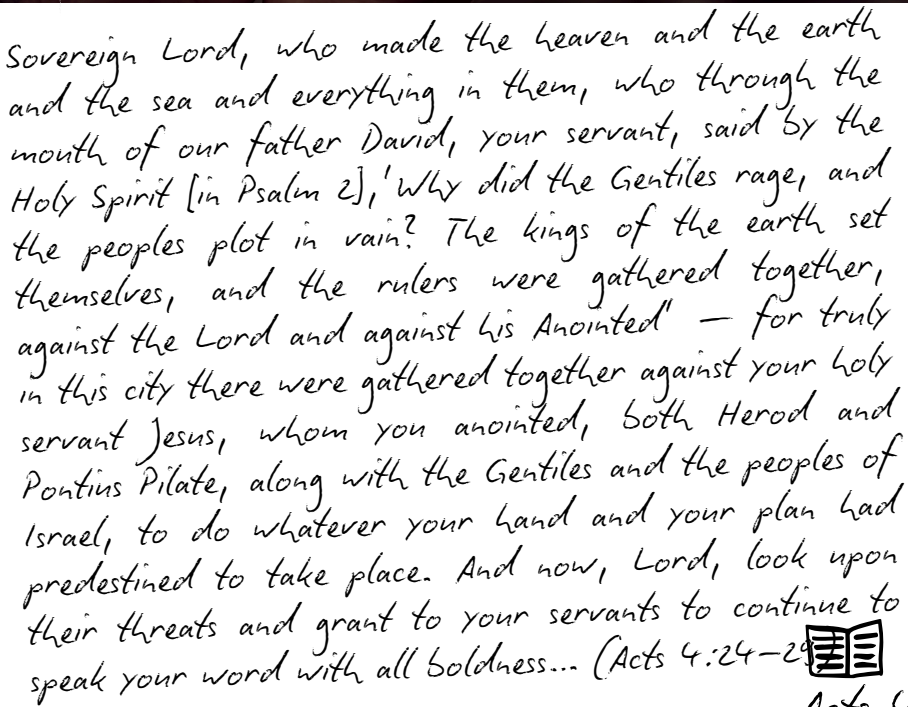 Sovereign Lord, who made the heaven and the earth
and the sea and everything in them, who through the
mouth of our father David, your servant, said by the
Holy Spirit [in Psalm 2], 'Why did the Gentiles rage, and
the peoples plot in vain? The kings of the earth set
themselves, and the rulers were gathered together,
against the Lord and against his Anointed' — for truly
in this city there were gathered together against your holy
servant Jesus, whom you anointed, both Herod and
Pontius Pilate, along with the Gentiles and the peoples of
Israel, to do whatever your hand and your plan had
predestined to take place. And now, Lord, look upon
their threats and grant to your servants to continue to
speak your word with all boldness... (Acts 4:24–29)